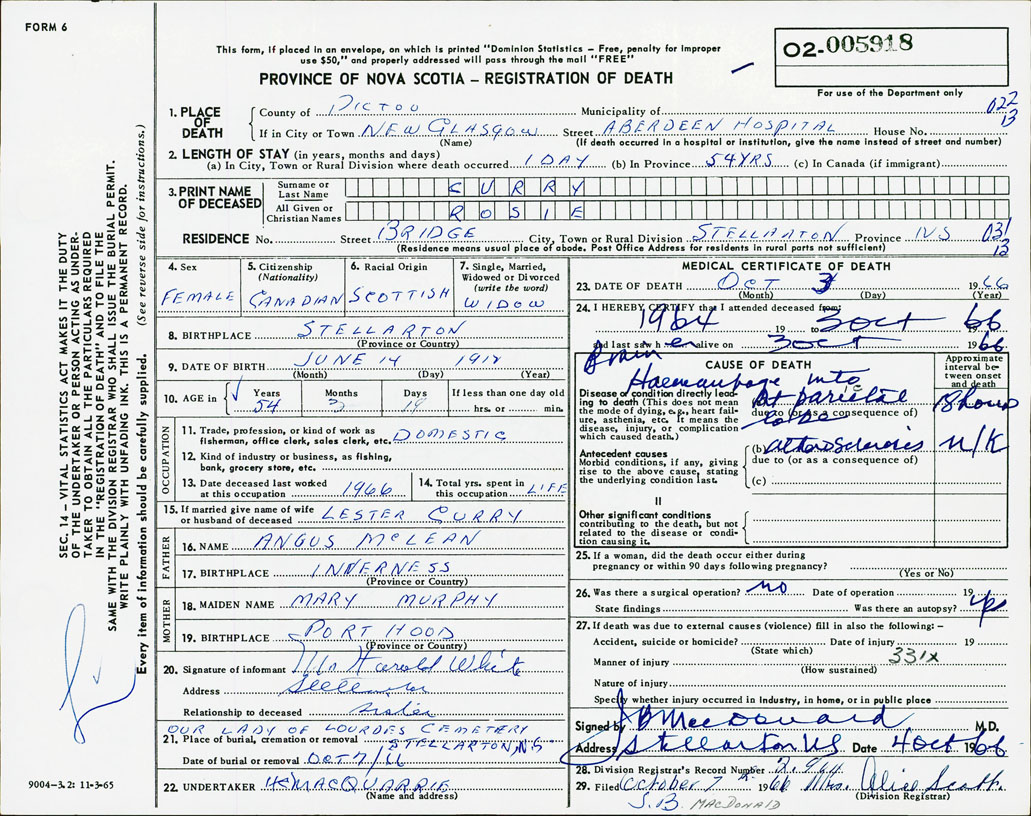 FORM 6
This form, if placed in an envelope, on which is printed "Dominion Statistics – Free, penalty for improper
use $50," and properly addressed will pass through the mail "FREE"
PROVINCE OF NOVA SCOTIA – REGISTRATION OF DEATH
02-005918
For use of the Department only
1. PLACE OF DEATH
County of PICTOU Municipality of 022 13
If in City or Town NEW GLASGOW Street ABERDEEN HOSPITAL House No.
(Name) (If death occurred in a hospital or institution, give the name instead of street and number)
2. LENGTH OF STAY (in years, months and days)
(a) In City, Town or Rural Division where death occurred 1 DAY (b) In Province 54 YRS (c) In Canada (if immigrant)
3. PRINT NAME OF DECEASED
Surname or Last Name CURRY
All Given or Christian Names ROSIE
RESIDENCE No. Street BRIDGE City, Town or Rural Division STELLARTON Province N.S 031 13
(Residence means usual place of abode. Post Office Address for residents in rural parts not sufficient)
4. Sex
FEMALE
5. Citizenship
(Nationality)
CANADIAN
6. Racial Origin
SCOTTISH
7. Single, Married,
Widowed or Divorced
(write the word)
WIDOW
8. BIRTHPLACE STELLARTON
(Province or Country)
9. DATE OF BIRTH JUNE 14 1912
(Month) (Day) (Year)
10. AGE in Years Months Days If less than one day old
54 3 19 hrs. or min.
OCCUPATION
11. Trade, profession, or kind of work as
fisherman, office clerk, sales clerk, etc. DOMESTIC
12. Kind of industry or business, as fishing,
bank, grocery store, etc.
13. Date deceased last worked
at this occupation 1966
14. Total yrs. spent in
this occupation LIFE
15. If married give name of wife
or husband of deceased LESTER CURRY
FATHER
16. NAME ANGUS McLEAN
17. BIRTHPLACE INNERNESS
(Province or Country)
MOTHER
18. MAIDEN NAME MARY MURPHY
19. BIRTHPLACE PORT HOOD
(Province or Country)
20. Signature of informant Mrs Harold White
Address Stellarton
Relationship to deceased sister
OUR LADY OF LOURDES CEMETERY
21. Place of burial, cremation or removal STELLARTON, N.S
Date of burial or removal OCT. 7/66
22. UNDERTAKER H MACQUARRIE
(Name and address)
MEDICAL CERTIFICATE OF DEATH
23. DATE OF DEATH OCT 3 1966
(Month) (Day) (Year)
24. I HEREBY CERTIFY that I attended deceased from:
1964 19 to 3 Oct 66
and last saw h er alive on 3 Oct 1966
CAUSE OF DEATH
Approximate
interval be-
tween onset
and death
Brain
Haemorrhage into
Disease or condition directly lead-
ing to death (This does not mean
the mode of dying, e.g., heart fail-
ure, asthenia, etc. It means the
disease, injury, or complication
which caused death.)
Rt parietal
due to (or as a consequence of)
lobe
18 hours
Antecedent causes
Morbid conditions, if any, giving
rise to the above cause, stating
the underlying condition last.
(b) atherosclerosis N/K
due to (or as a consequence of)
(c)
II
Other significant conditions
contributing to the death, but not
related to the disease or condi-
tion causing it.
25. If a woman, did the death occur either during
pregnancy or within 90 days following pregnancy?
(Yes or No)
26. Was there a surgical operation? no Date of operation 19
State findings Was there an autopsy? yes
27. If death was due to external causes (violence) fill in also the following: –
Accident, suicide or homicide? Date of injury 19
(State which) 331x
Manner of injury
(How sustained)
Nature of injury
Specify whether injury occurred in industry, in home, or in public place
Signed by M.D.
Address Stellarton NS Date 4 Oct 1966
28. Division Registrar's Record Number
29. Filed October 7 1966 Mrs. Alice Scott.
(Division Registrar)
J. B. MACDONALD
SEC. 14 – VITAL STATISTICS ACT MAKES IT THE DUTY
OF THE UNDERTAKER OR PERSON ACTING AS UNDER-
TAKER TO OBTAIN ALL THE PARTICULARS REQUIRED
IN THE "REGISTRATION OF DEATH" AND TO FILE THE
SAME WITH THE DIVISION REGISTRAR WHO SHALL ISSUE THE BURIAL PERMIT.
WRITE PLAINLY WITH UNFADING INK. THIS IS A PERMANENT RECORD.
Every item of information should be carefully supplied. (See reverse side for instructions.)
9004-3.2: 11-3-65